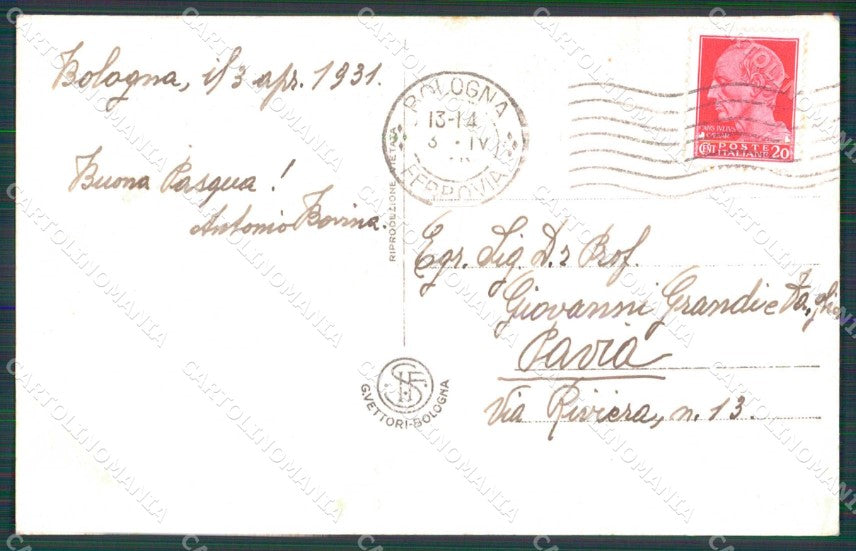 Bologna, il 3 apr. 1931.
Buona Pasqua!
Antonio Bovina.
BOLOGNA
13-14
3 · IV
FERROVIA
CAIUS IVLIVS
CAESAR
CENT. POSTE 20
ITALIANE
RIPRODUZIONE VIETATA
Egr. Sig. D.r Prof.
Giovanni Grandi e
Pavia
Via Riviera, n. 13.
G.VETTORI-BOLOGNA
CARTOLINOMANIA